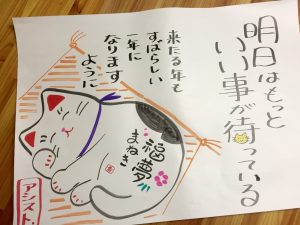 明日はもっと
いい事が待っている
来たる年も
すばらしい
一年に
なります
ように
福夢
まねき
アシスト.